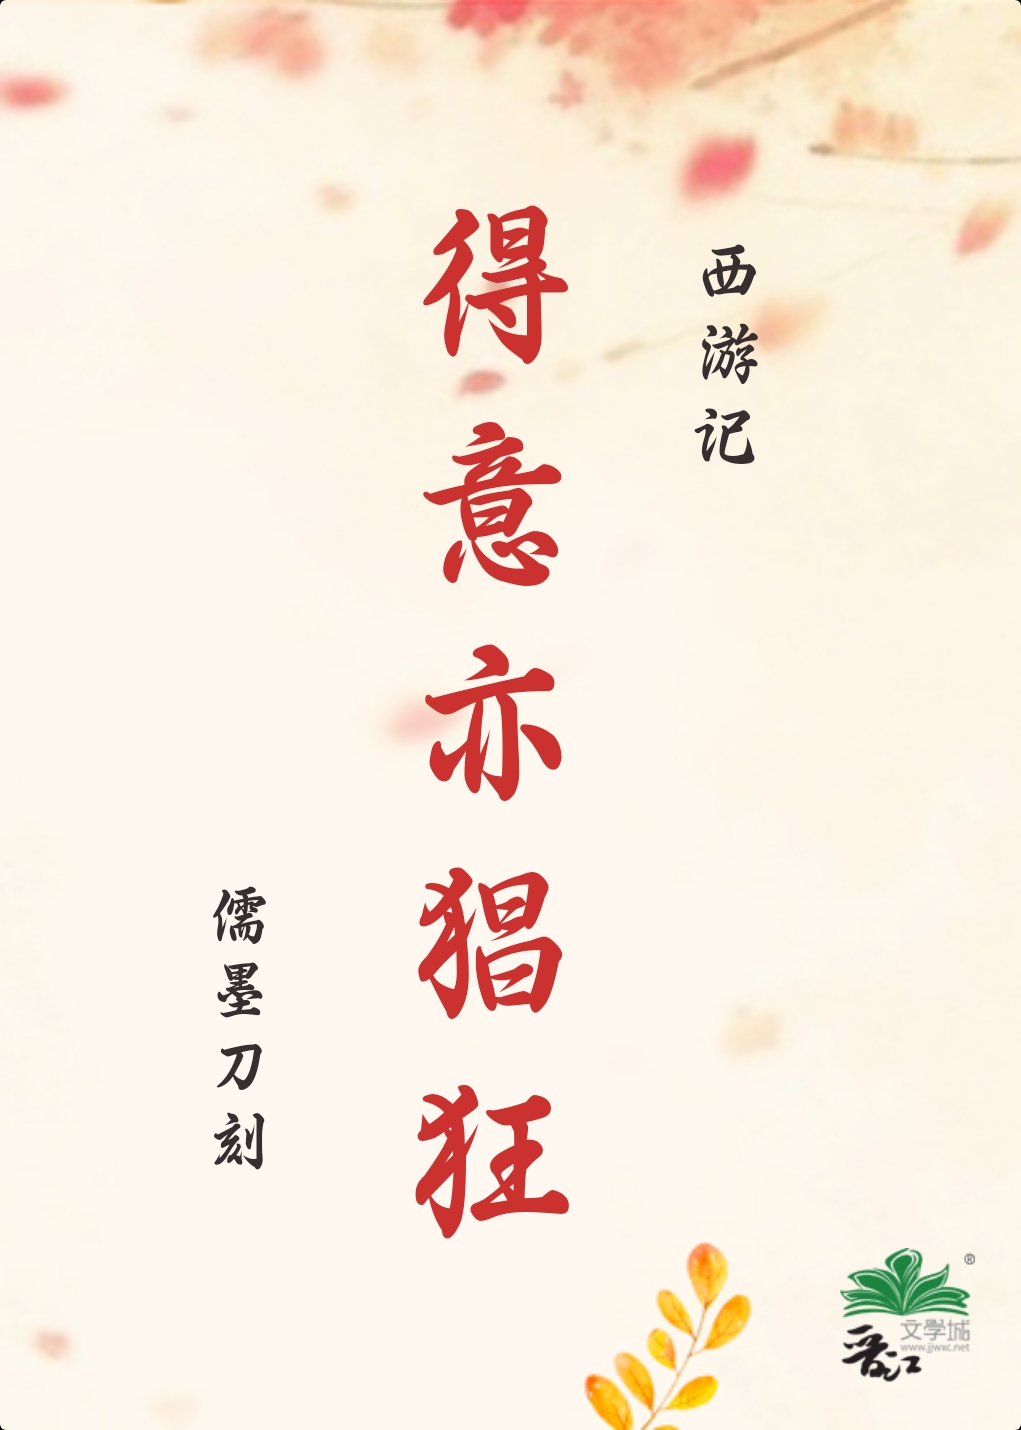 西游记
得意亦猖狂
儒墨刀刻
®
文学城
www.jjwxc.net
晋江